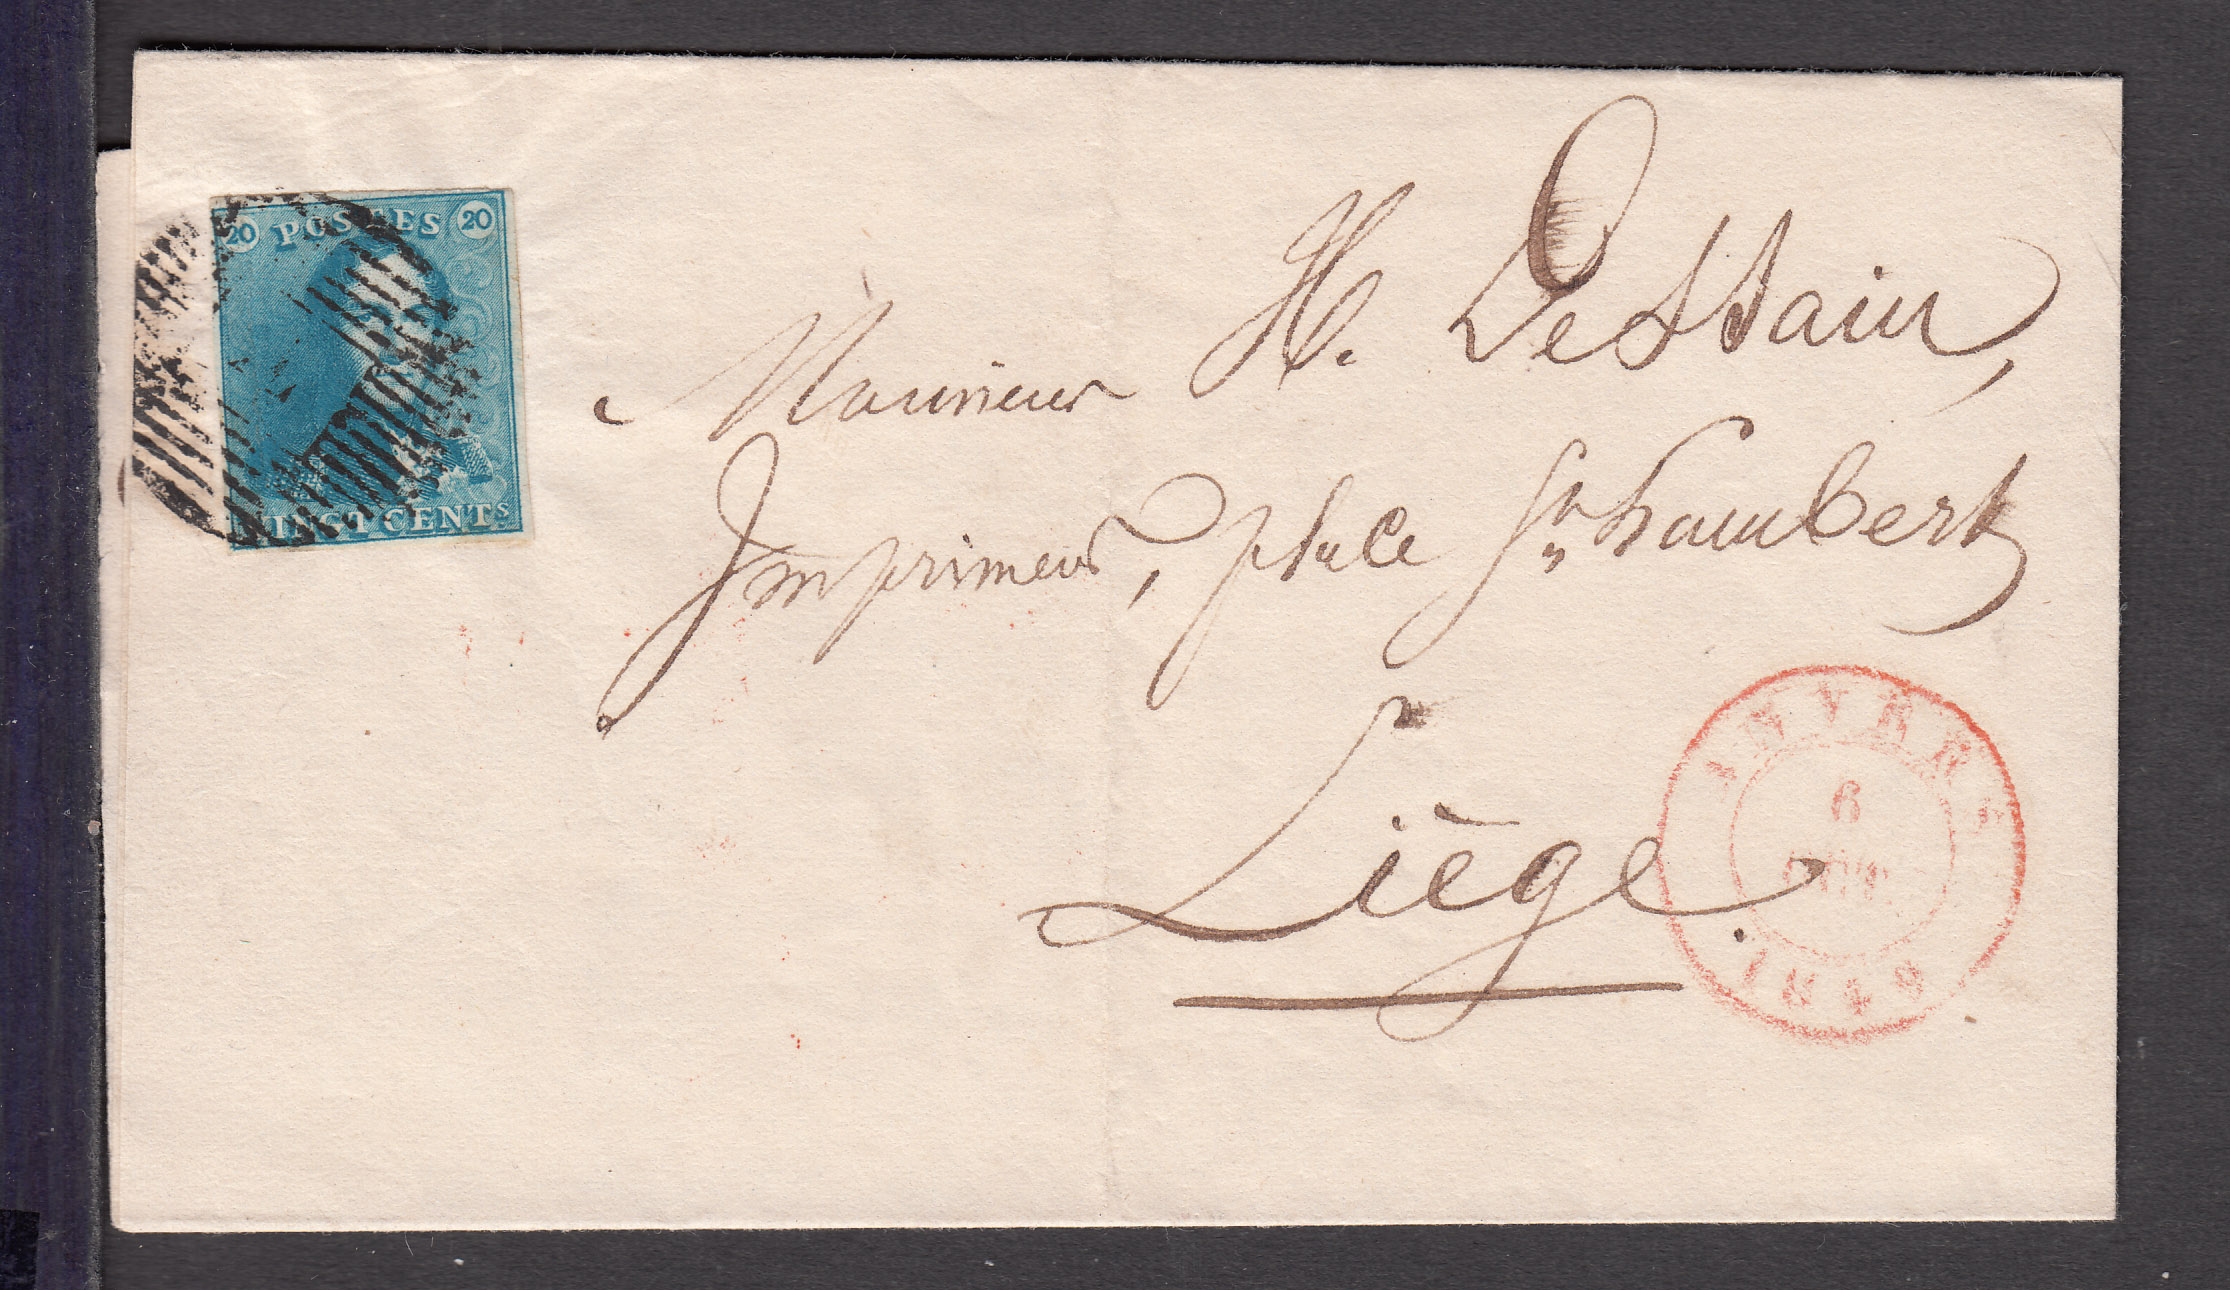 20 POSTES 20
INGT CENTS
Monsieur H. Dessain,
Imprimeur, place St Lambert
Liège.
ANVERS
6
OCT.
1849